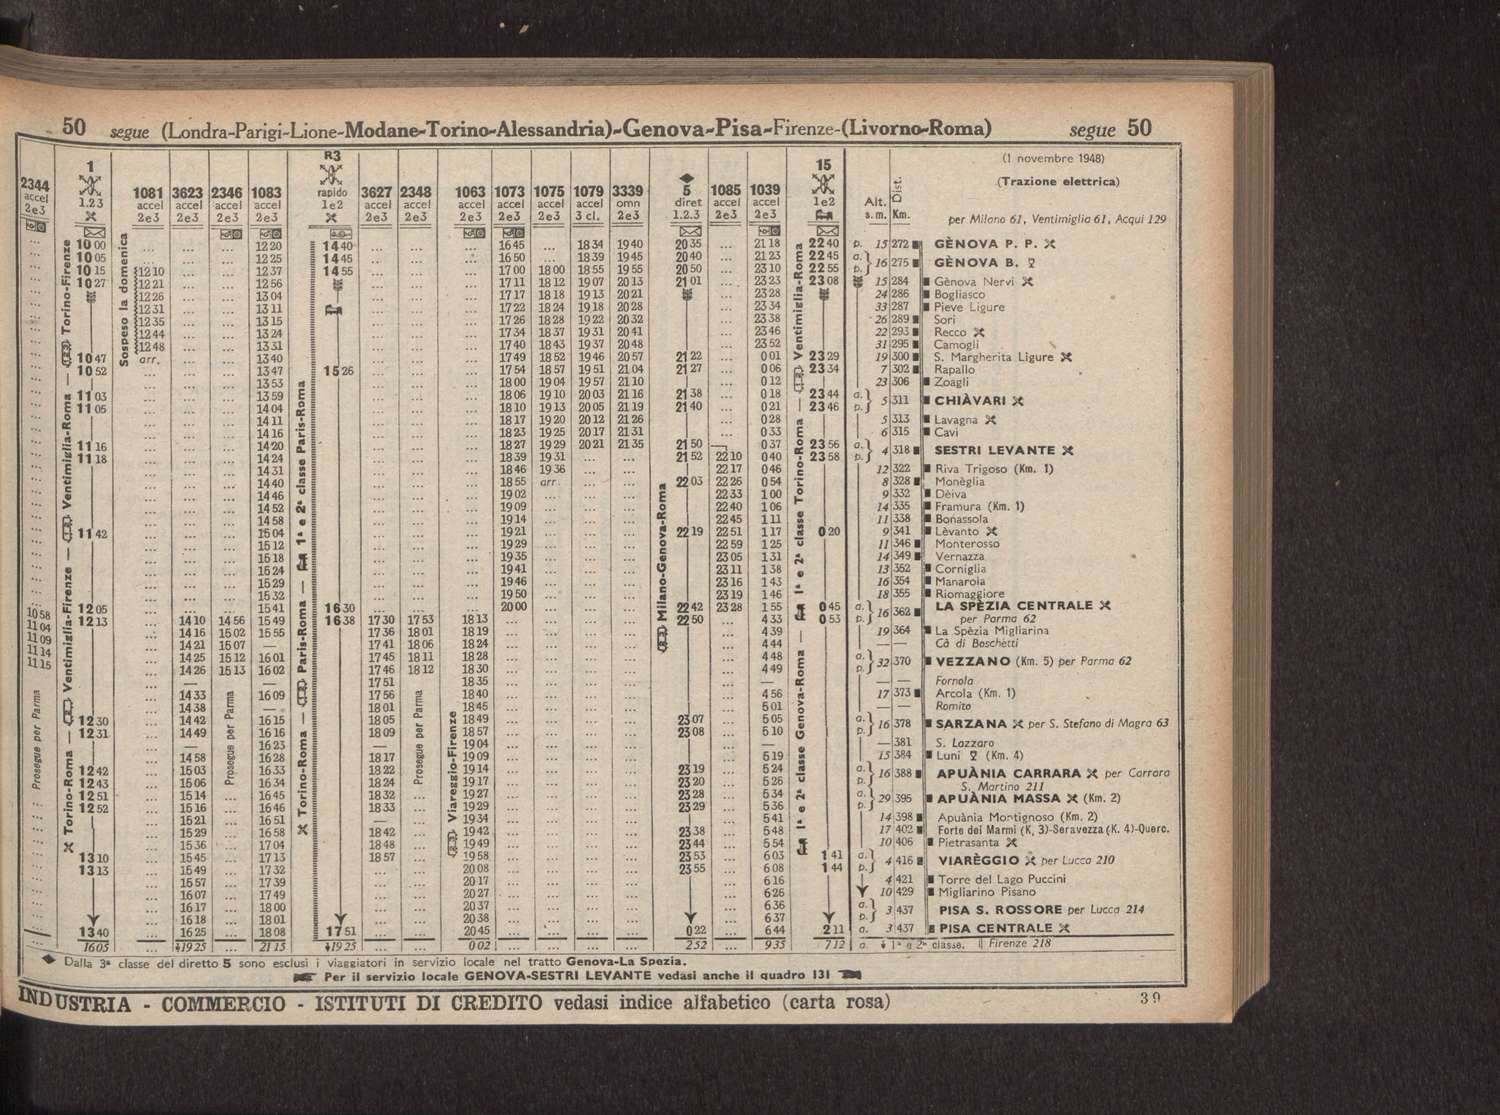 50 segue (Londra-Parigi-Lione-Modane-Torino-Alessandria)-Genova-Pisa-Firenze-(Livorno-Roma) segue 50
2344 accel 2e3
1 1.2.3
1081 accel 2e3
3623 accel 2e3
2346 accel 2e3
1083 accel 2e3
R3 rapido 1e2
3627 accel 2e3
2348 accel 2e3
1063 accel 2e3
1073 accel 2e3
1075 accel 2e3
1079 accel 3 cl.
3339 omn 2e3
5 diret 1.2.3
1085 accel 2e3
1039 accel 2e3
15 1e2
Alt. s.m.
Dist. Km.
(1 novembre 1948)
(Trazione elettrica)
per Milano 61, Ventimiglia 61, Acqui 129
10 00 ... ... ... 12 20 14 40 ... ... ... 16 45 ... 18 34 19 40 20 35 ... 21 18 22 40 p. 15 272 GÈNOVA P. P.
10 05 ... ... ... 12 25 14 45 ... ... ... 16 50 ... 18 39 19 45 20 40 ... 21 23 22 45 a.
10 15 12 10 ... ... 12 37 14 55 ... ... ... 17 00 18 00 18 55 19 55 20 50 ... 23 10 22 55 p. 16 275 GÈNOVA B.
10 27 12 21 ... ... 12 56 ... ... ... 17 11 18 12 19 07 20 13 21 01 ... 23 23 23 08 15 284 Gènova Nervi
12 26 ... ... 13 04 ... ... ... 17 17 18 18 19 13 20 21 ... 23 28 24 286 Bogliasco
12 31 ... ... 13 11 ... ... ... 17 22 18 24 19 18 20 28 ... 23 34 33 287 Pieve Ligure
12 35 ... ... 13 15 ... ... ... 17 26 18 28 19 22 20 32 ... 23 38 26 289 Sori
12 44 ... ... 13 24 ... ... ... 17 34 18 37 19 31 20 41 ... 23 46 22 293 Recco
12 48 ... ... 13 31 ... ... ... 17 40 18 43 19 37 20 48 ... 23 52 31 295 Camogli
10 47 arr. ... ... 13 40 ... ... ... 17 49 18 52 19 46 20 57 21 22 ... 0 01 23 29 19 300 S. Margherita Ligure
10 52 ... ... ... 13 47 15 26 ... ... ... 17 54 18 57 19 51 21 04 21 27 ... 0 06 23 34 7 302 Rapallo
... ... ... 13 53 ... ... ... 18 00 19 04 19 57 21 10 ... 0 12 23 306 Zoagli
11 03 ... ... ... 13 59 ... ... ... 18 06 19 10 20 03 21 16 21 38 ... 0 18 23 44 a.
11 05 ... ... ... 14 04 ... ... ... 18 10 19 13 20 05 21 19 21 40 ... 0 21 23 46 p. 5 311 CHIÀVARI
... ... ... 14 11 ... ... ... 18 17 19 20 20 12 21 26 ... 0 28 5 313 Lavagna
... ... ... 14 16 ... ... ... 18 23 19 25 20 17 21 31 ... 0 33 6 315 Cavi
11 16 ... ... ... 14 20 ... ... ... 18 27 19 29 20 21 21 35 21 50 0 37 23 56 a.
11 18 ... ... ... 14 24 ... ... ... 18 39 19 31 ... ... 21 52 22 10 0 40 23 58 p. 4 318 SESTRI LEVANTE
... ... ... 14 31 ... ... ... 18 46 19 36 ... ... 22 17 0 46 12 322 Riva Trigoso (Km. 1)
... ... ... 14 40 ... ... ... 18 55 arr. ... ... 22 03 22 26 0 54 8 328 Monèglia
... ... ... 14 46 ... ... ... 19 02 ... ... ... 22 33 1 00 9 332 Dèiva
... ... ... 14 52 ... ... ... 19 09 ... ... ... 22 40 1 06 14 335 Framura (Km. 1)
... ... ... 14 58 ... ... ... 19 14 ... ... ... 22 45 1 11 11 338 Bonassola
11 42 ... ... ... 15 04 ... ... ... 19 21 ... ... ... 22 19 22 51 1 17 0 20 9 341 Lèvanto
... ... ... 15 12 ... ... ... 19 29 ... ... ... 22 59 1 25 11 346 Monterosso
... ... ... 15 18 ... ... ... 19 35 ... ... ... 23 05 1 31 14 349 Vernazza
... ... ... 15 24 ... ... ... 19 41 ... ... ... 23 11 1 38 13 352 Corniglia
... ... ... 15 29 ... ... ... 19 46 ... ... ... 23 16 1 43 16 354 Manarola
... ... ... 15 32 ... ... ... 19 50 ... ... ... 23 19 1 46 18 355 Riomaggiore
12 05 ... ... ... 15 41 16 30 ... ... ... 20 00 ... ... ... 22 42 23 28 1 55 0 45 a. LA SPÈZIA CENTRALE
10 58 12 13 ... 14 10 14 56 15 49 16 38 17 30 17 53 18 13 ... ... ... ... 22 50 ... 4 33 0 53 p. 16 362 per Parma 62
11 04 ... 14 16 15 02 15 55 17 36 18 01 18 19 ... ... ... ... ... 4 39 19 364 La Spèzia Migliarina
11 09 ... 14 21 15 07 — 17 41 18 06 18 24 ... ... ... ... ... 4 44 — — Cà di Boschetti
11 14 ... 14 25 15 12 16 01 17 45 18 11 18 28 ... ... ... ... ... 4 48 a.
11 15 ... 14 26 15 13 16 02 17 46 18 12 18 30 ... ... ... ... ... 4 49 p. 32 370 VEZZANO (Km. 5) per Parma 62
... — — 17 51 18 35 ... ... ... ... ... — — — Fornola
... 14 33 16 09 17 56 18 40 ... ... ... ... ... 4 56 17 373 Arcola (Km. 1)
... 14 38 — 18 01 18 45 ... ... ... ... ... 5 01 — — Romito
12 30 ... 14 42 16 15 18 05 18 49 ... ... ... ... 23 07 ... 5 05 a.
12 31 ... 14 49 16 16 18 09 18 57 ... ... ... ... 23 08 ... 5 10 p. 16 378 SARZANA per S. Stefano di Magra 63
... — 16 23 — 19 04 ... ... ... ... ... — — 381 S. Lazzaro
... 14 58 16 28 18 17 19 09 ... ... ... ... ... 5 19 15 384 Luni (Km. 4)
12 42 ... 15 03 16 33 18 22 19 14 ... ... ... ... 23 19 ... 5 24 a. 16 388 APUÀNIA CARRARA per Carrara
12 43 ... 15 06 16 34 18 24 19 17 ... ... ... ... 23 20 ... 5 26 p. S. Martino 211
12 51 ... 15 14 16 45 18 32 19 27 ... ... ... ... 23 28 ... 5 34 a.
12 52 ... 15 16 16 46 18 33 19 29 ... ... ... ... 23 29 ... 5 36 p. 29 395 APUÀNIA MASSA (Km. 2)
... 15 21 16 51 — 19 34 ... ... ... ... ... 5 41 14 398 Apuània Montignoso (Km. 2)
... 15 29 ... 16 58 18 42 ... 19 42 ... ... ... ... 23 38 ... 5 48 17 402 Forte dei Marmi (K, 3)-Seravezza (K. 4)-Querc.
... 15 36 ... 17 04 18 48 ... 19 49 ... ... ... ... 23 44 ... 5 54 10 406 Pietrasanta
13 10 ... 15 45 ... 17 13 18 57 ... 19 58 ... ... ... ... 23 53 ... 6 03 1 41 a.
13 13 ... 15 49 ... 17 32 ... ... 20 08 ... ... ... ... 23 55 ... 6 08 1 44 p. 4 416 VIARÈGGIO per Lucca 210
... 15 57 ... 17 39 ... ... 20 17 ... ... ... ... ... 6 16 4 421 Torre del Lago Puccini
... 16 07 ... 17 49 ... ... 20 27 ... ... ... ... ... 6 26 10 429 Migliarino Pisano
... 16 17 ... 18 00 ... ... 20 37 ... ... ... ... ... 6 36 a.
... 16 18 ... 18 01 ... ... 20 38 ... ... ... ... ... 6 37 p. 3 437 PISA S. ROSSORE per Lucca 214
13 40 ... 16 25 ... 18 08 17 51 ... ... 20 45 ... ... ... ... 0 22 ... 6 44 2 11 a. 3 437 PISA CENTRALE
... 16 05 ... 19 25 ... 21 15 19 25 ... ... 0 02 ... ... ... ... 2 52 ... 9 35 7 12 a. 1ª e 2ª classe. Firenze 218
Prosegue per Parma
Torino-Roma — Ventimiglia-Firenze — Ventimiglia-Roma — Torino-Firenze
Sospeso la domenica
Prosegue per Parma
Torino-Roma — Paris-Roma — 1ª e 2ª classe Paris-Roma
Prosegue per Parma
Viareggio-Firenze
Milano-Genova-Roma
1ª e 2ª classe Genova-Roma — 1ª e 2ª classe Torino-Roma — Ventimiglia-Roma
Dalla 3ª classe del diretto 5 sono esclusi i viaggiatori in servizio locale nel tratto Genova-La Spezia.
Per il servizio locale GENOVA-SESTRI LEVANTE vedasi anche il quadro 131
INDUSTRIA - COMMERCIO - ISTITUTI DI CREDITO vedasi indice alfabetico (carta rosa)
39